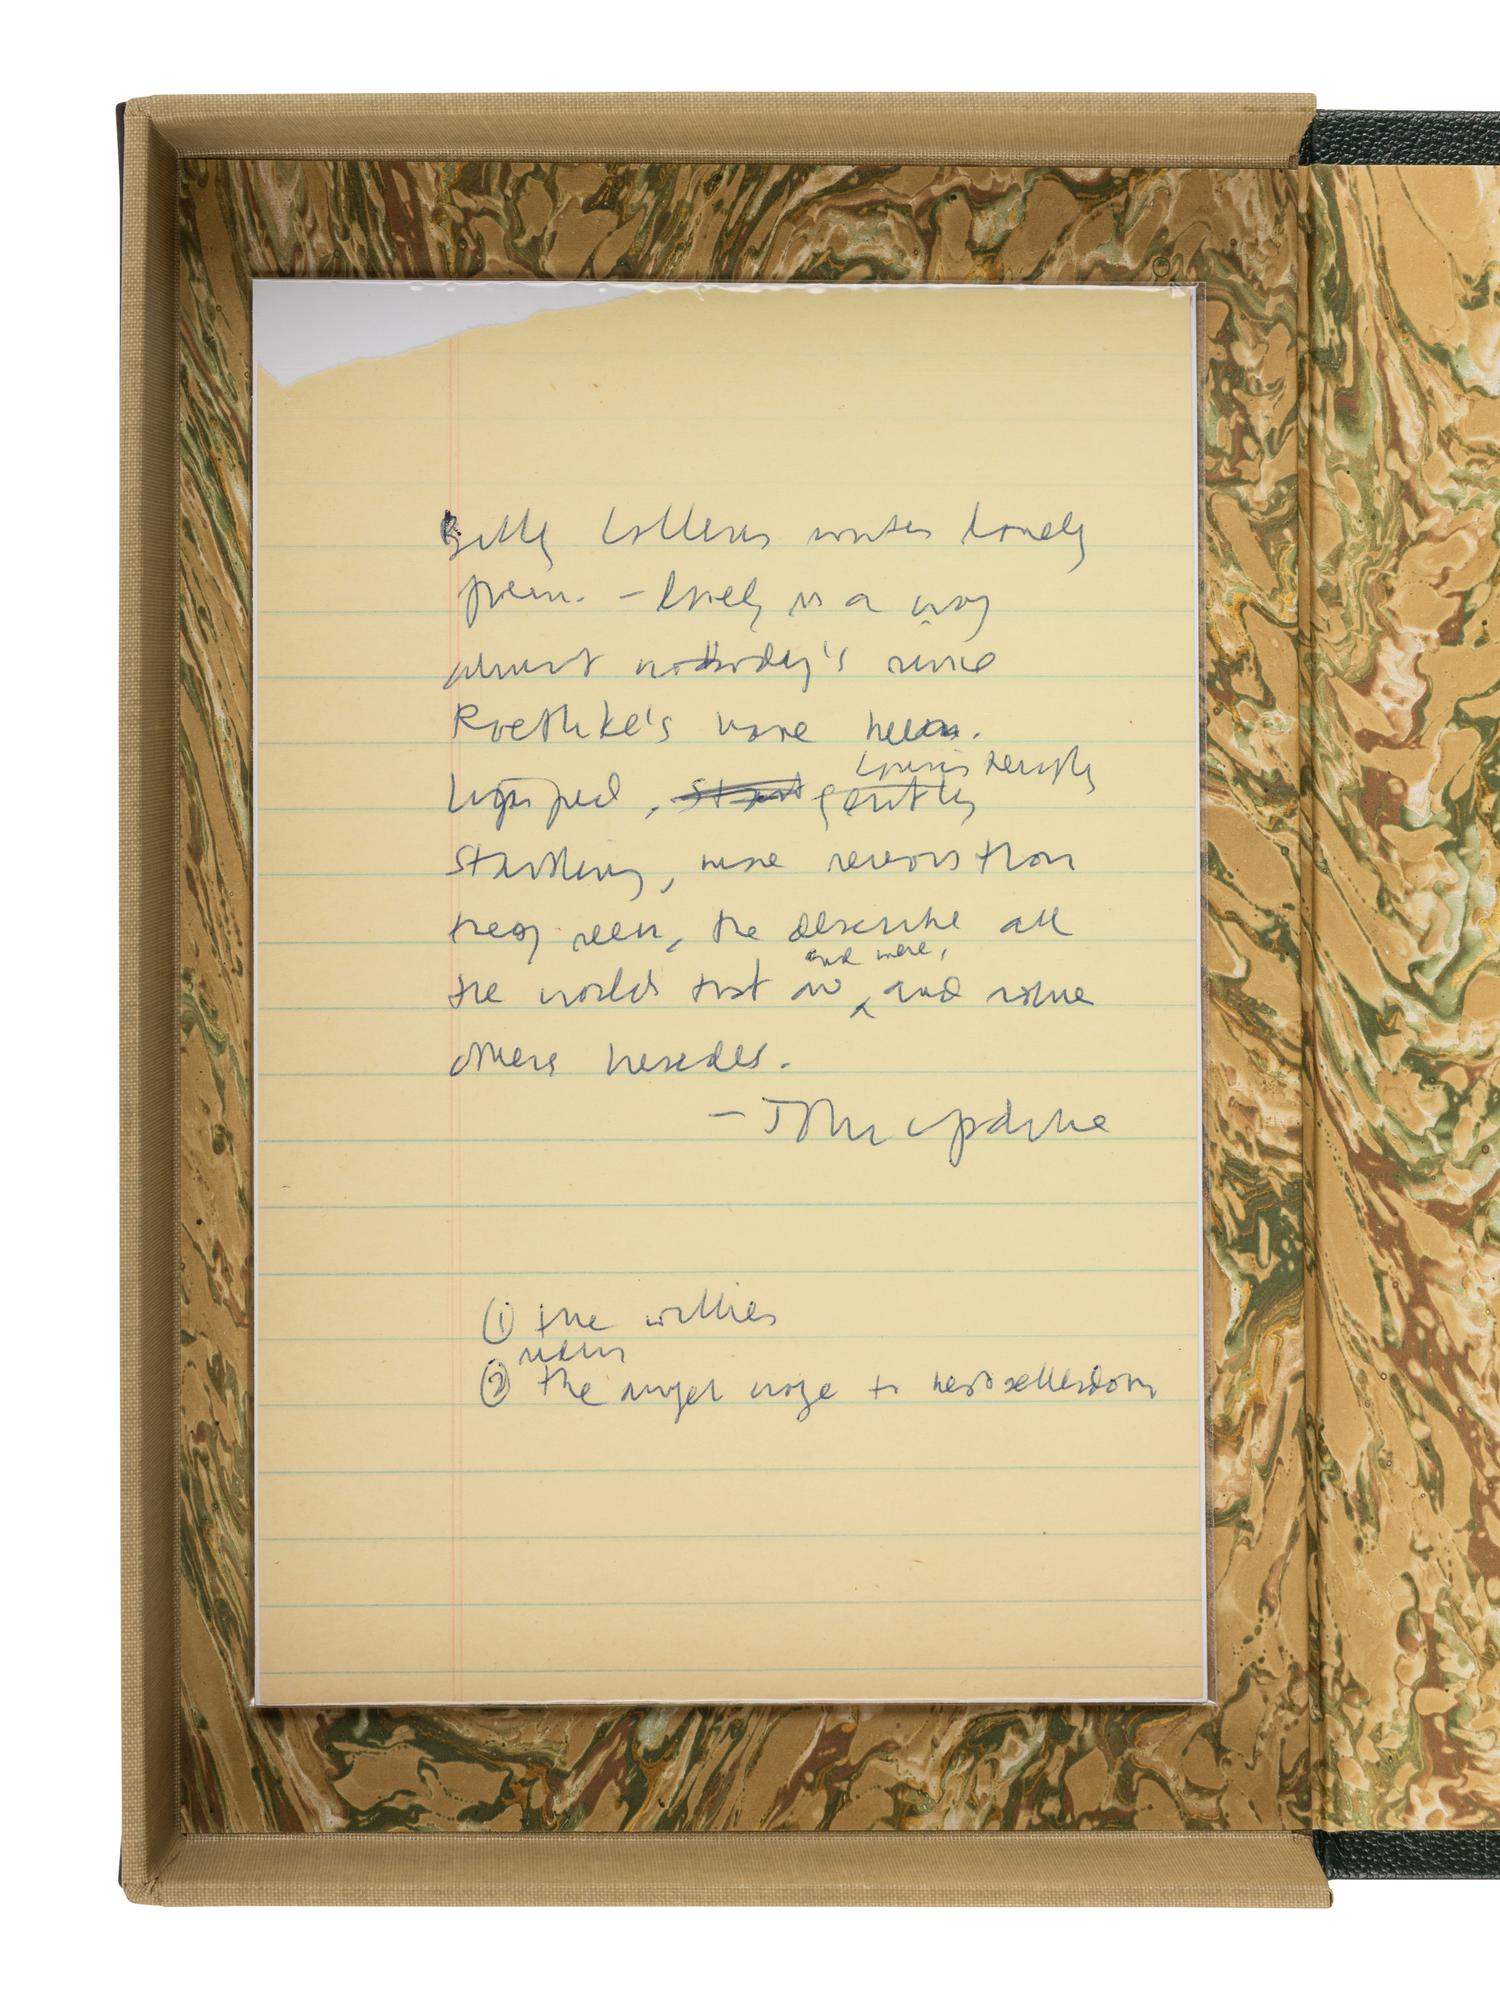 Billy Collins writes lovely
poems – lovely in a way
almost nobody's since
Roethke's have been.
Limpid, gently
consistently
startling, more serious than
they seem, they describe all
the worlds that are and were, and some
others besides.
– John Updike
① the willies
② the angel to bestsellerdom